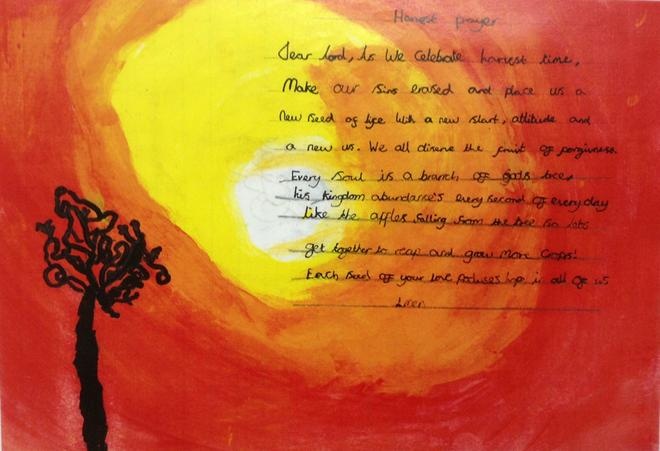 Harvest prayer
Dear Lord, As We Celebrate harvest time,
Make our Sins erased and place us a
New seed of life With a new Start, attitude and
a new us. We all diserve the fruit of forgivness.
Every Soul is a branch of gods tree,
his kingdom abundance's every second of everyday
like the apples falling from the tree so lets
get together to reap and grow more Crops!
Each seed of your love poduses in all of us
Amen